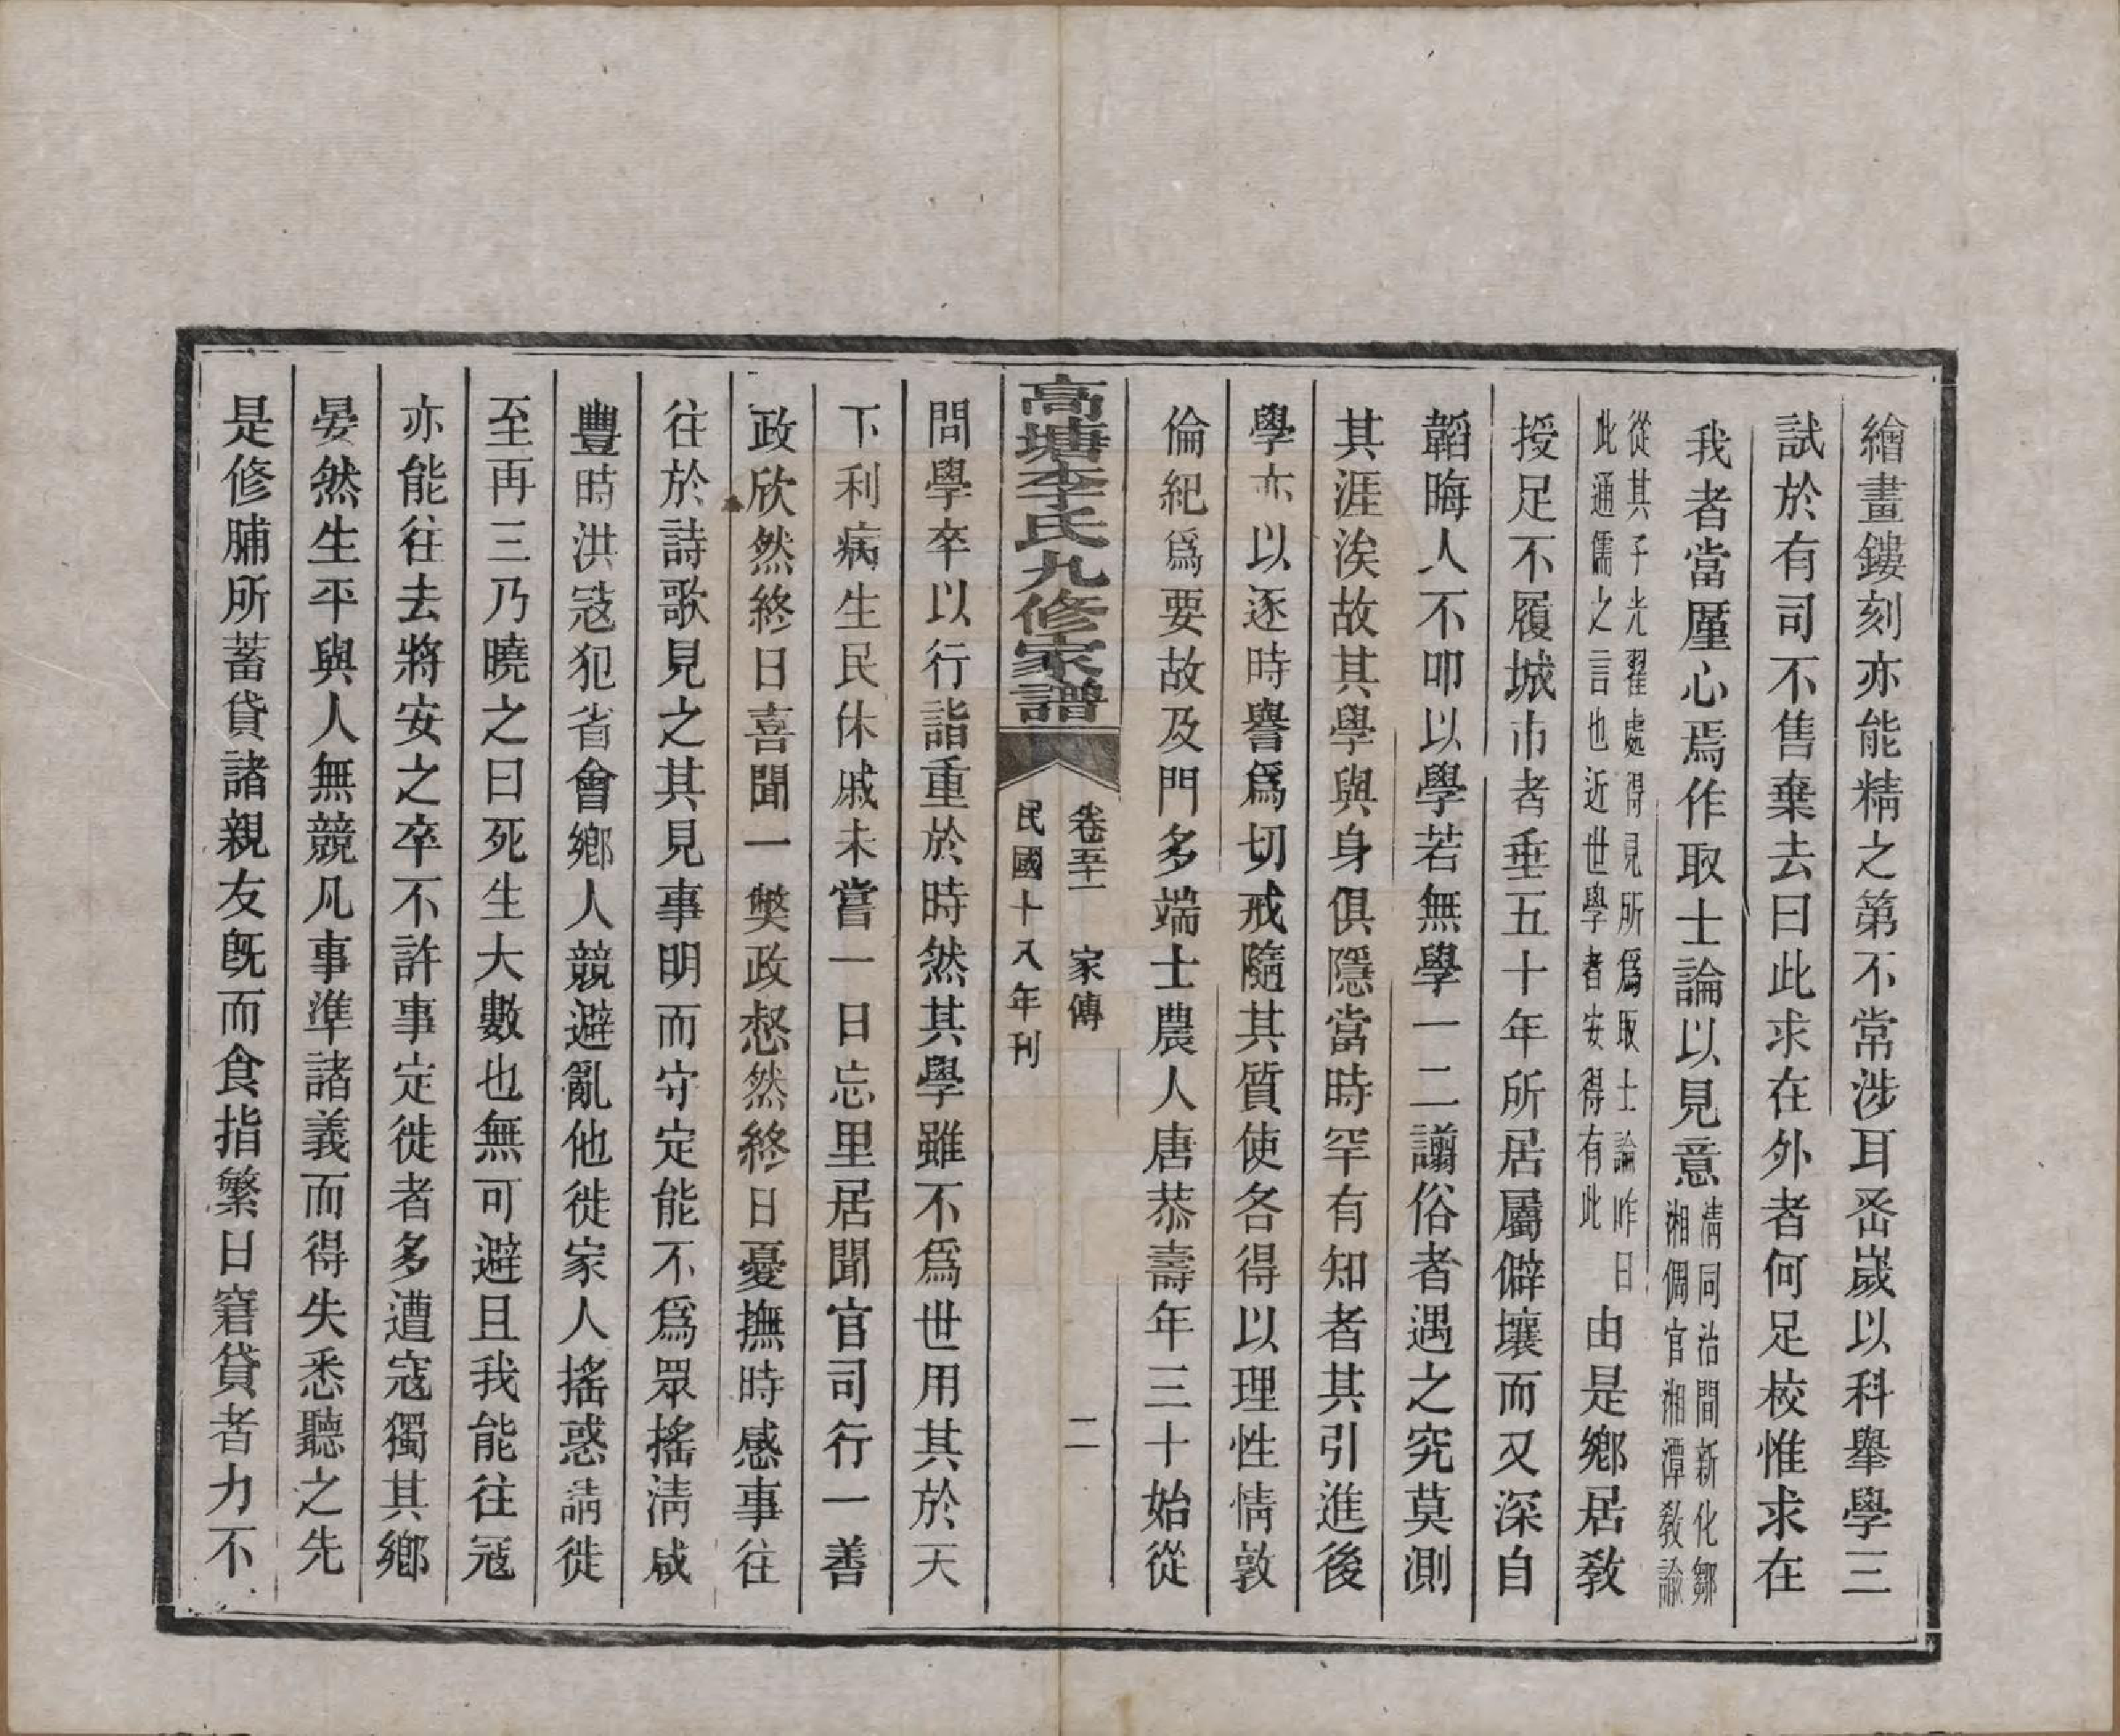 繪畫鏤刻亦能精之第不常涉耳峊嵗以科舉學三
試於有司不售棄去曰此求在外者何足校惟求在
我者當厪心焉作取士論以見意清同治間新化鄒
湘倜官湘潭敎諭
從其子光翟處得見所爲取士論昨日
此通儒之言也近世學者安得有此
由是鄉居敎
授足不履城市者垂五十年所居屬僻壤而又深自
韜晦人不叩以學若無學一二謭俗者遇之究莫測
其涯涘故其學與身俱隱當時罕有知者其引進後
學亦以逐時譽爲切戒隨其質使各得以理性情敦
倫紀爲要故及門多端士農人唐恭壽年三十始從
高塘李氏九修家譜
卷五十一　家傳
二
民國十八年刊
問學卒以行詣重於時然其學雖不爲世用其於天
下利病生民休戚未嘗一日忘里居聞官司行一善
政欣然終日喜聞一獘政惄然終日憂撫時感事往
往於詩歌見之其見事明而守定能不爲眾搖淸咸
豐時洪寇犯省會鄉人競避亂他徙家人搖惑請徙
至再三乃曉之曰死生大數也無可避且我能往寇
亦能往去將安之卒不許事定徙者多遭寇獨其鄉
晏然生平與人無競凡事準諸義而得失悉聽之先
是修脯所蓄貸諸親友旣而食指繁日窘貸者力不